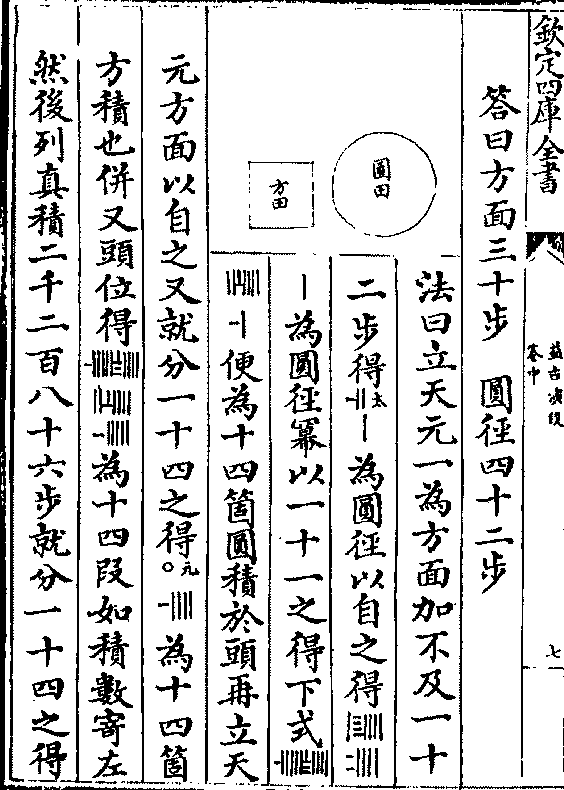 欽定四庫全書
益古演段
卷中
七
答曰方面三十步　圓徑四十二步
法曰立天元一為方面加不及一十
二步得太為圓徑以自之得
為圓徑冪以一十一之得下式
便為十四箇圓積於頭再立天
圓田
方田
元方面以自之又就分一十四之得〇元為十四箇
方積也併又頭位得為十四段如積數寄左
然後列真積二千二百八十六步就分一十四之得